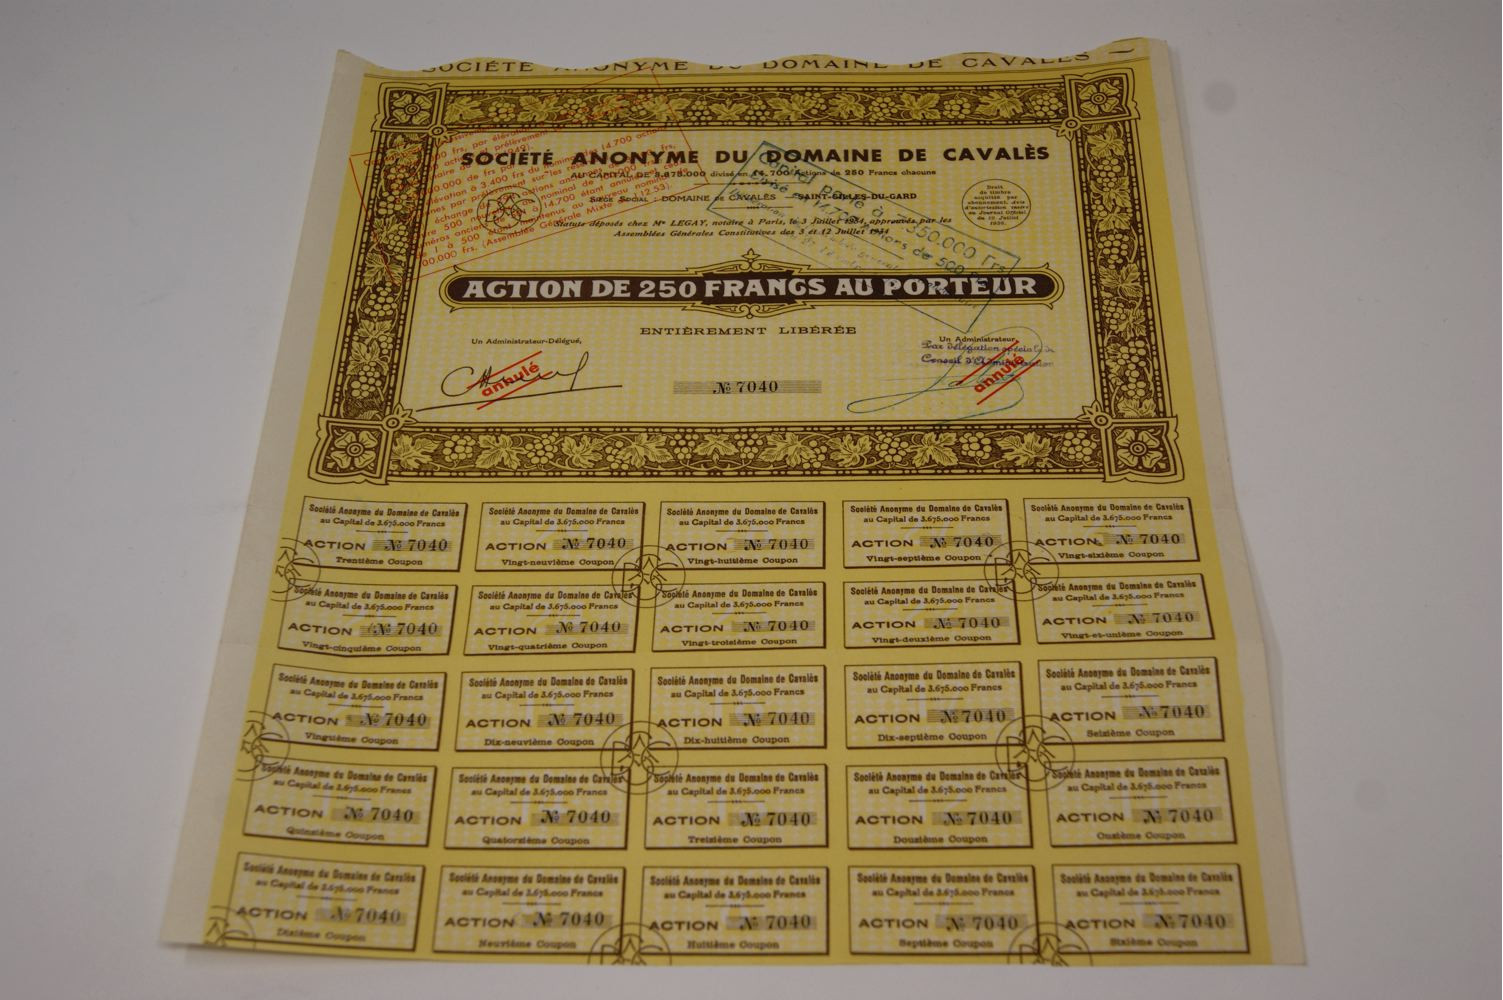 SOCIÉTÉ ANONYME DU DOMAINE DE CAVALÈS
SOCIÉTÉ ANONYME DU DOMAINE DE CAVALÈS
AU CAPITAL DE 3.675.000 divisé en 14.700 Actions de 250 Francs chacune
SIÈGE SOCIAL : DOMAINE DE CAVALÈS SAINT-GILLES-DU-GARD
Statuts déposés chez Me LEGAY, notaire à Paris, le 3 Juillet 1934, approuvés par les
Assemblées Générales Constitutives des 3 et 12 Juillet 1934
Droit
de timbre
acquitté par
abonnement. Avis
d'autorisation inséré
au Journal Officiel
du
Capital Porté à 7.350.000 Frs
divisé en 14.700 Actions de 500
14.700 actions
(Assemblée Générale Mixte
ACTION DE 250 FRANCS AU PORTEUR
ENTIÈREMENT LIBÉRÉE
Un Administrateur-Délégué,
Un Administrateur,
Par délégation spéciale du
Conseil d'Administration
annulé
annulé
№ 7040
Société Anonyme du Domaine de Cavalès
au Capital de 3.675.000 Francs
ACTION № 7040
Trentième Coupon
Société Anonyme du Domaine de Cavalès
au Capital de 3.675.000 Francs
ACTION № 7040
Vingt-neuvième Coupon
Société Anonyme du Domaine de Cavalès
au Capital de 3.675.000 Francs
ACTION № 7040
Vingt-huitième Coupon
Société Anonyme du Domaine de Cavalès
au Capital de 3.675.000 Francs
ACTION № 7040
Vingt-septième Coupon
Société Anonyme du Domaine de Cavalès
au Capital de 3.675.000 Francs
ACTION № 7040
Vingt-sixième Coupon
Société Anonyme du Domaine de Cavalès
au Capital de 3.675.000 Francs
ACTION № 7040
Vingt-cinquième Coupon
Société Anonyme du Domaine de Cavalès
au Capital de 3.675.000 Francs
ACTION № 7040
Vingt-quatrième Coupon
Société Anonyme du Domaine de Cavalès
au Capital de 3.675.000 Francs
ACTION № 7040
Vingt-troisième Coupon
Société Anonyme du Domaine de Cavalès
au Capital de 3.675.000 Francs
ACTION № 7040
Vingt-deuxième Coupon
Société Anonyme du Domaine de Cavalès
au Capital de 3.675.000 Francs
ACTION № 7040
Vingt-et-unième Coupon
Société Anonyme du Domaine de Cavalès
au Capital de 3.675.000 Francs
ACTION № 7040
Vingtième Coupon
Société Anonyme du Domaine de Cavalès
au Capital de 3.675.000 Francs
ACTION № 7040
Dix-neuvième Coupon
Société Anonyme du Domaine de Cavalès
au Capital de 3.675.000 Francs
ACTION № 7040
Dix-huitième Coupon
Société Anonyme du Domaine de Cavalès
au Capital de 3.675.000 Francs
ACTION № 7040
Dix-septième Coupon
Société Anonyme du Domaine de Cavalès
au Capital de 3.675.000 Francs
ACTION № 7040
Seizième Coupon
Société Anonyme du Domaine de Cavalès
au Capital de 3.675.000 Francs
ACTION № 7040
Quinzième Coupon
Société Anonyme du Domaine de Cavalès
au Capital de 3.675.000 Francs
ACTION № 7040
Quatorzième Coupon
Société Anonyme du Domaine de Cavalès
au Capital de 3.675.000 Francs
ACTION № 7040
Treizième Coupon
Société Anonyme du Domaine de Cavalès
au Capital de 3.675.000 Francs
ACTION № 7040
Douzième Coupon
Société Anonyme du Domaine de Cavalès
au Capital de 3.675.000 Francs
ACTION № 7040
Onzième Coupon
Société Anonyme du Domaine de Cavalès
au Capital de 3.675.000 Francs
ACTION № 7040
Dixième Coupon
Société Anonyme du Domaine de Cavalès
au Capital de 3.675.000 Francs
ACTION № 7040
Neuvième Coupon
Société Anonyme du Domaine de Cavalès
au Capital de 3.675.000 Francs
ACTION № 7040
Huitième Coupon
Société Anonyme du Domaine de Cavalès
au Capital de 3.675.000 Francs
ACTION № 7040
Septième Coupon
Société Anonyme du Domaine de Cavalès
au Capital de 3.675.000 Francs
ACTION № 7040
Sixième Coupon